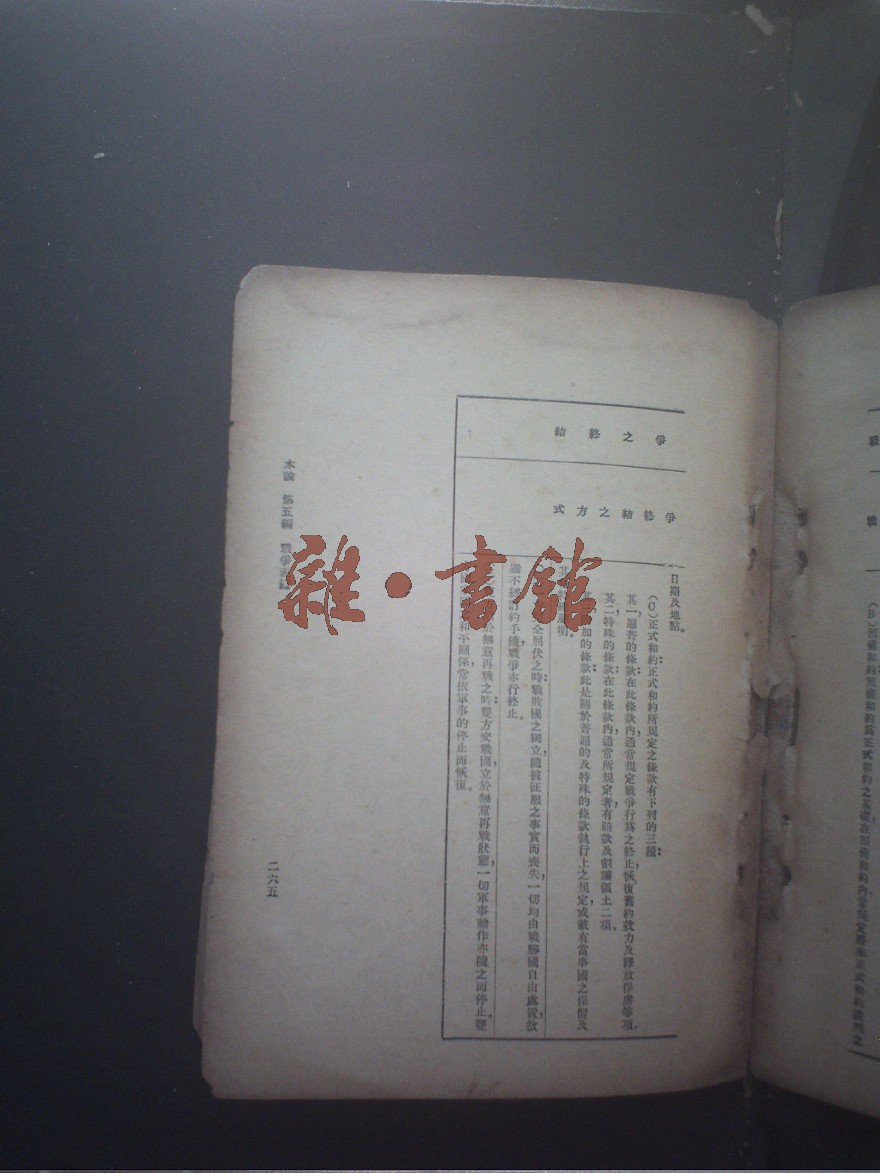 爭之終結
爭終結之方式
日期及地點。
(C)正式和約正式和約所規定之條款有下列的三種：
其一，過普的條款在此條款內，通常規定戰爭行爲之終止，恢復舊約效力及釋放俘虜等項。
其二，特殊的條款在此條款內，通常所規定者有賠款及割讓領土二項。
加的條款此是關於普遍的及特殊的條款執行上之規定，或載有當事國之保留及
全屈伏之時，戰敗國之獨立，隨被征服之事實而喪失，一切均由戰勝國自由處置，故
不經
約手續戰爭亦行終止。
於無意再戰之時，雙方交戰國立於無意再戰狀態，一切軍事動作亦隨之而停止。雙
和平關係，當依軍事的停止而恢復。
本論 第五編 戰爭
二六五
雜·書館
戰
戰
(B)預備和約預備和約爲正式和約之基礎，在預備和約內常規定將來正式和約談判之